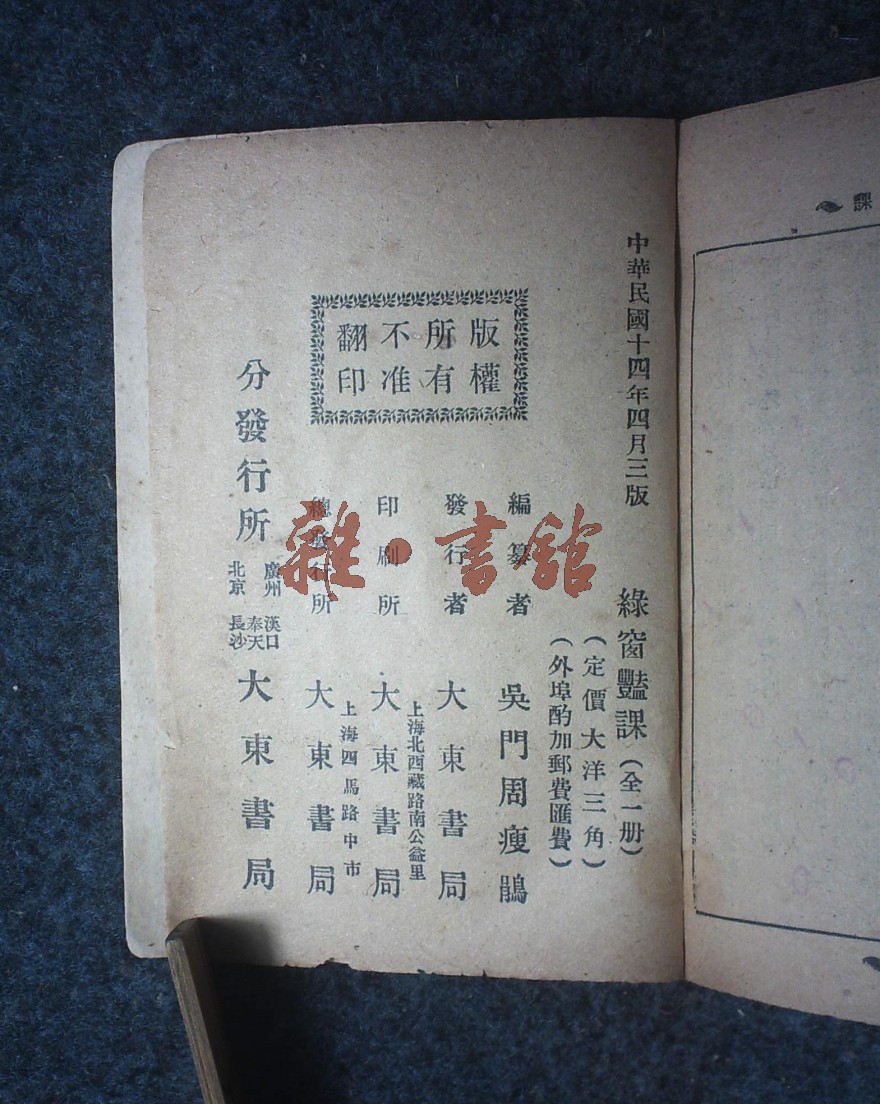 中華民國十四年四月三版
綠窗豔課（全一册）
（定價大洋三角）
（外埠酌加郵費匯費）
版權所有不准翻印
編纂者 吳門周瘦鵑
發行者 大東書局
上海北西藏路南公益里
印刷所 大東書局
上海四馬路中市
總發行所 大東書局
分發行所 廣州 漢口 奉天 北京 長沙 大東書局
雜·書館
課